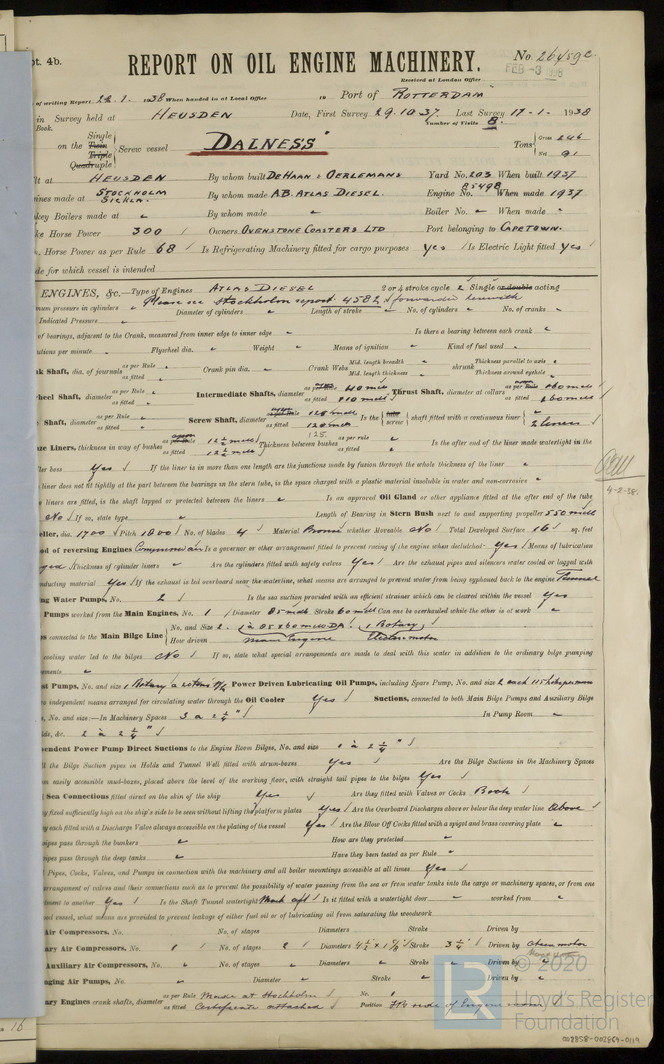 pt. 4b.
REPORT ON OIL ENGINE MACHINERY.
No. 26459c
Received at London Office
FEB -3
of writing Report 22.1.1938 When handed in at Local Office
Port of ROTTERDAM
in Survey held at HEUSDEN Date, First Survey 29.10.37. Last Survey 17-1-1938
Book.
Number of Visits 8.
on the Single Twin Triple Quadruple Screw vessel "DALNESS" Tons Gross 246 Net 91
lt at HEUSDEN By whom built DE HAAN & OERLEMANS Yard No. 203 When built 1937
ines made at STOCKHOLM SICKLA. By whom made A.B. ATLAS DIESEL. Engine No. 85498 When made 1937
key Boilers made at By whom made Boiler No. When made
ke Horse Power 300 Owners OVENSTONE COASTERS LTD Port belonging to CAPETOWN.
Horse Power as per Rule 68 Is Refrigerating Machinery fitted for cargo purposes Yes Is Electric Light fitted Yes
de for which vessel is intended
ENGINES, &c.—Type of Engines ATLAS DIESEL 2 or 4 stroke cycle 2 Single or double acting
Please see Stockholm report 4582 forwarded herewith
mum pressure in cylinders Diameter of cylinders Length of stroke No. of cylinders No. of cranks
Indicated Pressure
of bearings, adjacent to the Crank, measured from inner edge to inner edge Is there a bearing between each crank
utions per minute Flywheel dia. Weight Means of ignition Kind of fuel used
nk Shaft, dia. of journals as per Rule as fitted Crank pin dia. Crank Webs Mid. length breadth Mid. length thickness shrunk Thickness parallel to axis Thickness around eyehole
heel Shaft, diameter as per Rule as fitted Intermediate Shafts, diameter as fitted 110 mdls Thrust Shaft, diameter at collars as per Rule as fitted
Shaft, diameter as per Rule as fitted Screw Shaft, diameter as fitted 125 Is the screw shaft fitted with a continuous liner 2 liners
ze Liners, thickness in way of bushes as fitted 12½ mdls Thickness between bushes as per rule as fitted Is the after end of the liner made watertight in the
ller boss Yes If the liner is in more than one length are the junctions made by fusion through the whole thickness of the liner
liner does not fit tightly at the part between the bearings in the stern tube, is the space charged with a plastic material insoluble in water and non-corrosive
liners are fitted, is the shaft lapped or protected between the liners Is an approved Oil Gland or other appliance fitted at the after end of the tube
No If so, state type Length of Bearing in Stern Bush next to and supporting propeller 550 mdls
eller, dia. 1700 Pitch 1200 No. of blades 4 Material Bronze whether Moveable No Total Developed Surface 16 sq. feet
od of reversing Engines Compressed air Is a governor or other arrangement fitted to prevent racing of the engine when declutched Yes Means of lubrication
Thickness of cylinder liners Are the cylinders fitted with safety valves Yes Are the exhaust pipes and silencers water cooled or lagged with
nducting material Yes If the exhaust is led overboard near the waterline, what means are arranged to prevent water from being syphoned back to the engine Funnel
ng Water Pumps, No. 2 Is the sea suction provided with an efficient strainer which can be cleared within the vessel Yes
Pumps worked from the Main Engines, No. 1 Diameter 85 mdls Stroke 60 mdls Can one be overhauled while the other is at work
s connected to the Main Bilge Line No. and Size 2. 1 à 85 x 60 mdls DA. 1 Rotary How driven main Engine Electric motor
cooling water led to the bilges No If so, state what special arrangements are made to deal with this water in addition to the ordinary bilge pumping
ements
st Pumps, No. and size 1 Rotary Power Driven Lubricating Oil Pumps, including Spare Pump, No. and size 2 each
independent means arranged for circulating water through the Oil Cooler Yes Suctions, connected to both Main Bilge Pumps and Auxiliary Bilge
s, No. and size:—In Machinery Spaces 3 à 2¼" In Pump Room
lds, &c. 2 à 2¼"
endent Power Pump Direct Suctions to the Engine Room Bilges, No. and size 1 à 2¼"
ll the Bilge Suction pipes in Holds and Tunnel Well fitted with strum-boxes Yes Are the Bilge Suctions in the Machinery Spaces
om easily accessible mud-boxes, placed above the level of the working floor, with straight tail pipes to the bilges Yes
Sea Connections fitted direct on the skin of the ship Yes Are they fitted with Valves or Cocks Both
fixed sufficiently high on the ship's side to be seen without lifting the platform plates Yes Are the Overboard Discharges above or below the deep water line Above
each fitted with a Discharge Valve always accessible on the plating of the vessel Yes Are the Blow Off Cocks fitted with a spigot and brass covering plate
ipes pass through the bunkers How are they protected
ipes pass through the deep tanks Have they been tested as per Rule
Pipes, Cocks, Valves, and Pumps in connection with the machinery and all boiler mountings accessible at all times Yes
arrangement of valves and their connections such as to prevent the possibility of water passing from the sea or from water tanks into the cargo or machinery spaces, or from one
tment to another Yes Is the Shaft Tunnel watertight Mach aft Is it fitted with a watertight door worked from
ood vessel, what means are provided to prevent leakage of either fuel oil or of lubricating oil from saturating the woodwork
Air Compressors, No. No. of stages Diameters Stroke Driven by
ary Air Compressors, No. 1 No. of stages 2 Diameters Stroke 3¼" Driven by
Auxiliary Air Compressors, No. No. of stages Diameters Stroke Driven by
nging Air Pumps, No. Diameter Stroke Driven by
ary Engines crank shafts, diameter as per Rule Made at Stockholm as fitted Certificate attached No. 1 Position
4-2-38.
16
LR © 2020
Lloyd's Register
Foundation
002858-002864-0119